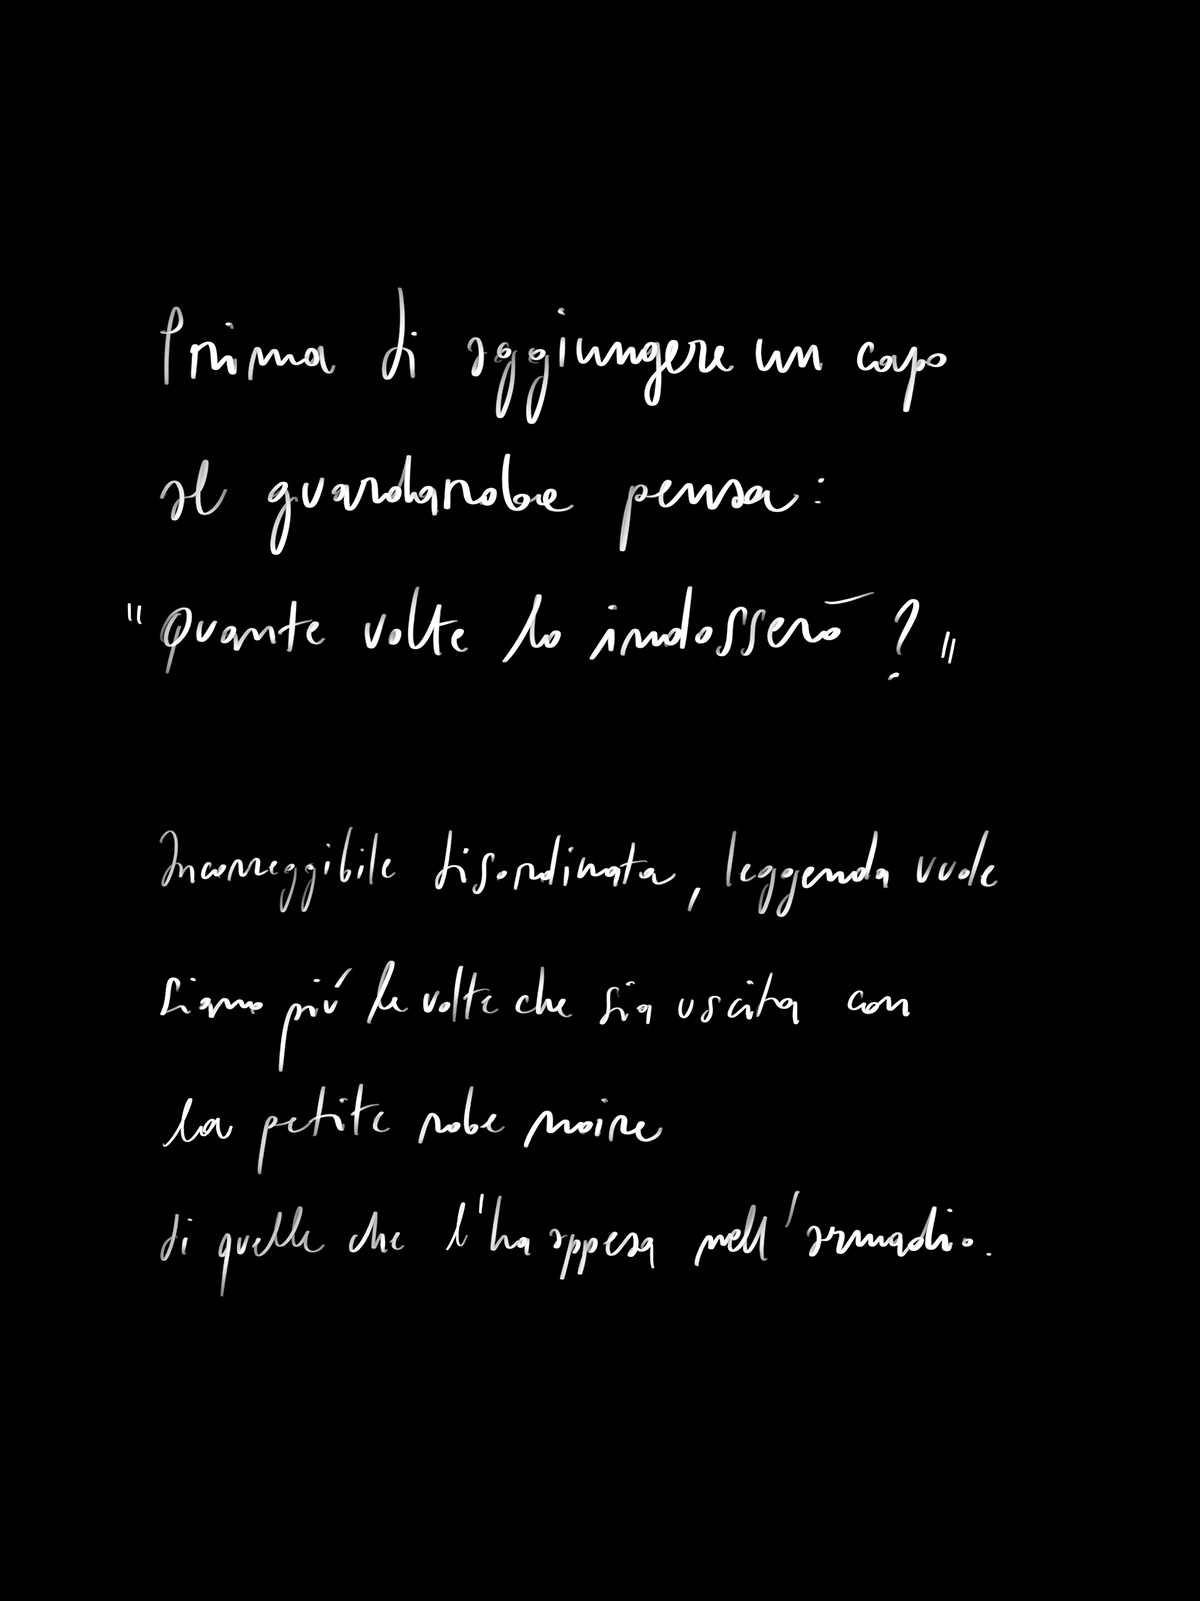 Prima di aggiungere un capo
al guardarobe pensa:
"Quante volte lo indosserò?"
Incorreggibile disordinata, leggenda vuole
siano più le volte che sia uscita con
la petite robe noire
di quelle che l'ha appesa nell'armadio.